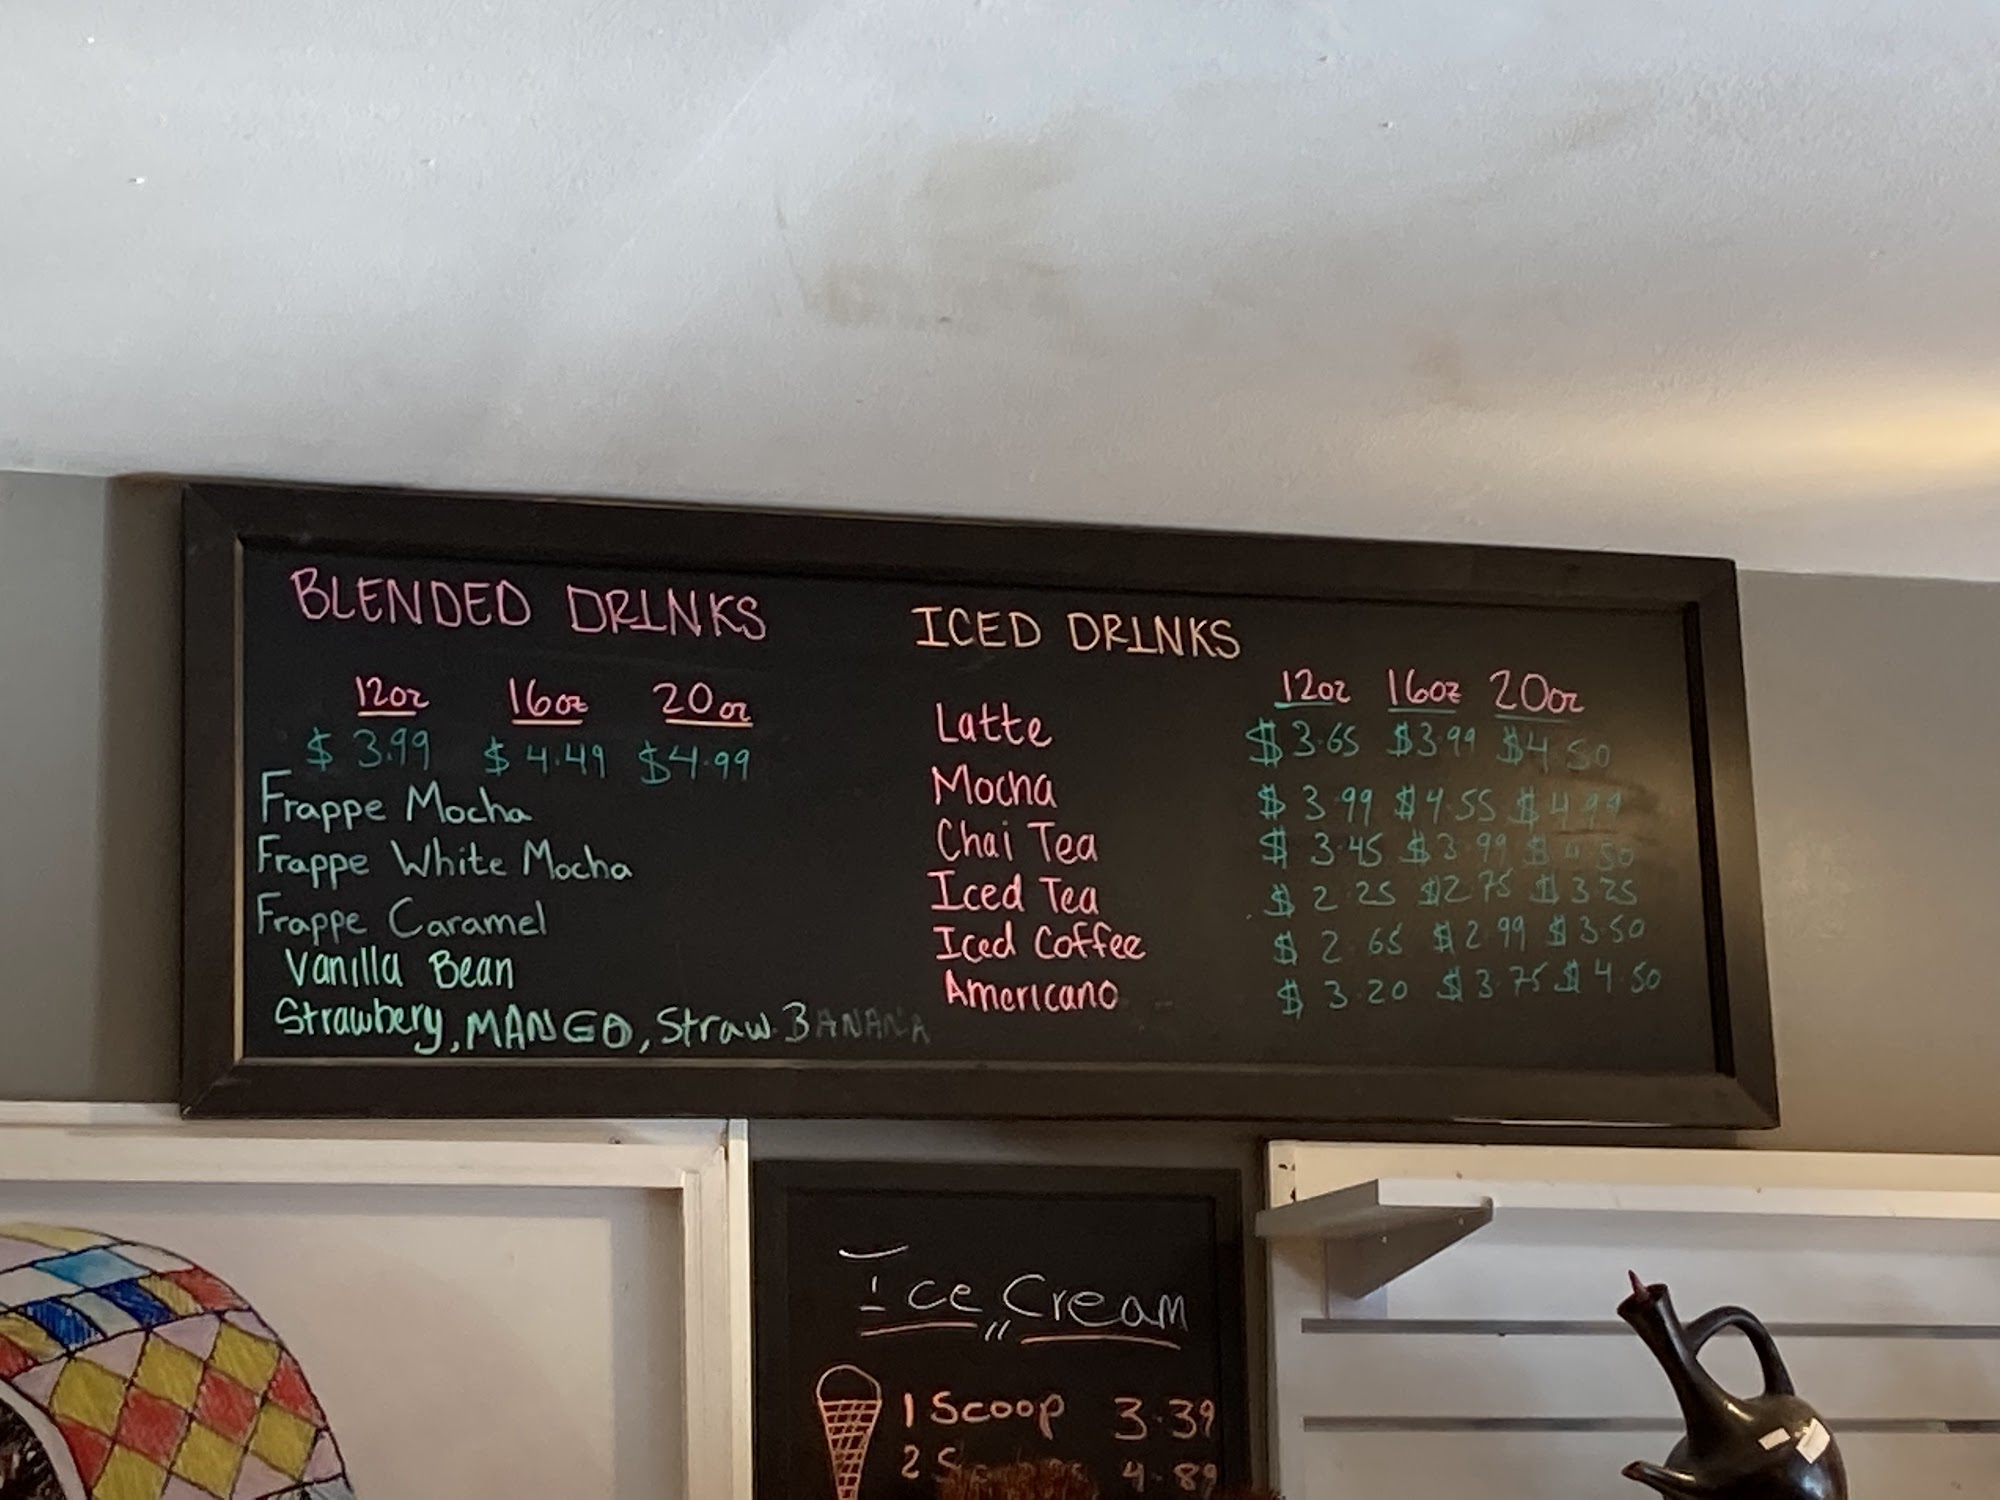 BLENDED DRINKS
12oz 16oz 20oz
$3.99 $4.49 $4.99
Frappe Mocha
Frappe White Mocha
Frappe Caramel
Vanilla Bean
Strawbery, MANGO, Straw. BANANA
ICED DRINKS
12oz 16oz 20oz
Latte $3.65 $3.99 $4.50
Mocha $3.99 $4.55 $4.99
Chai Tea $3.45 $3.99 $4.50
Iced Tea $2.25 $2.75 $3.25
Iced Coffee $2.65 $2.99 $3.50
Americano $3.20 $3.75 $4.50
Ice Cream
1 Scoop 3.39
2 4.89